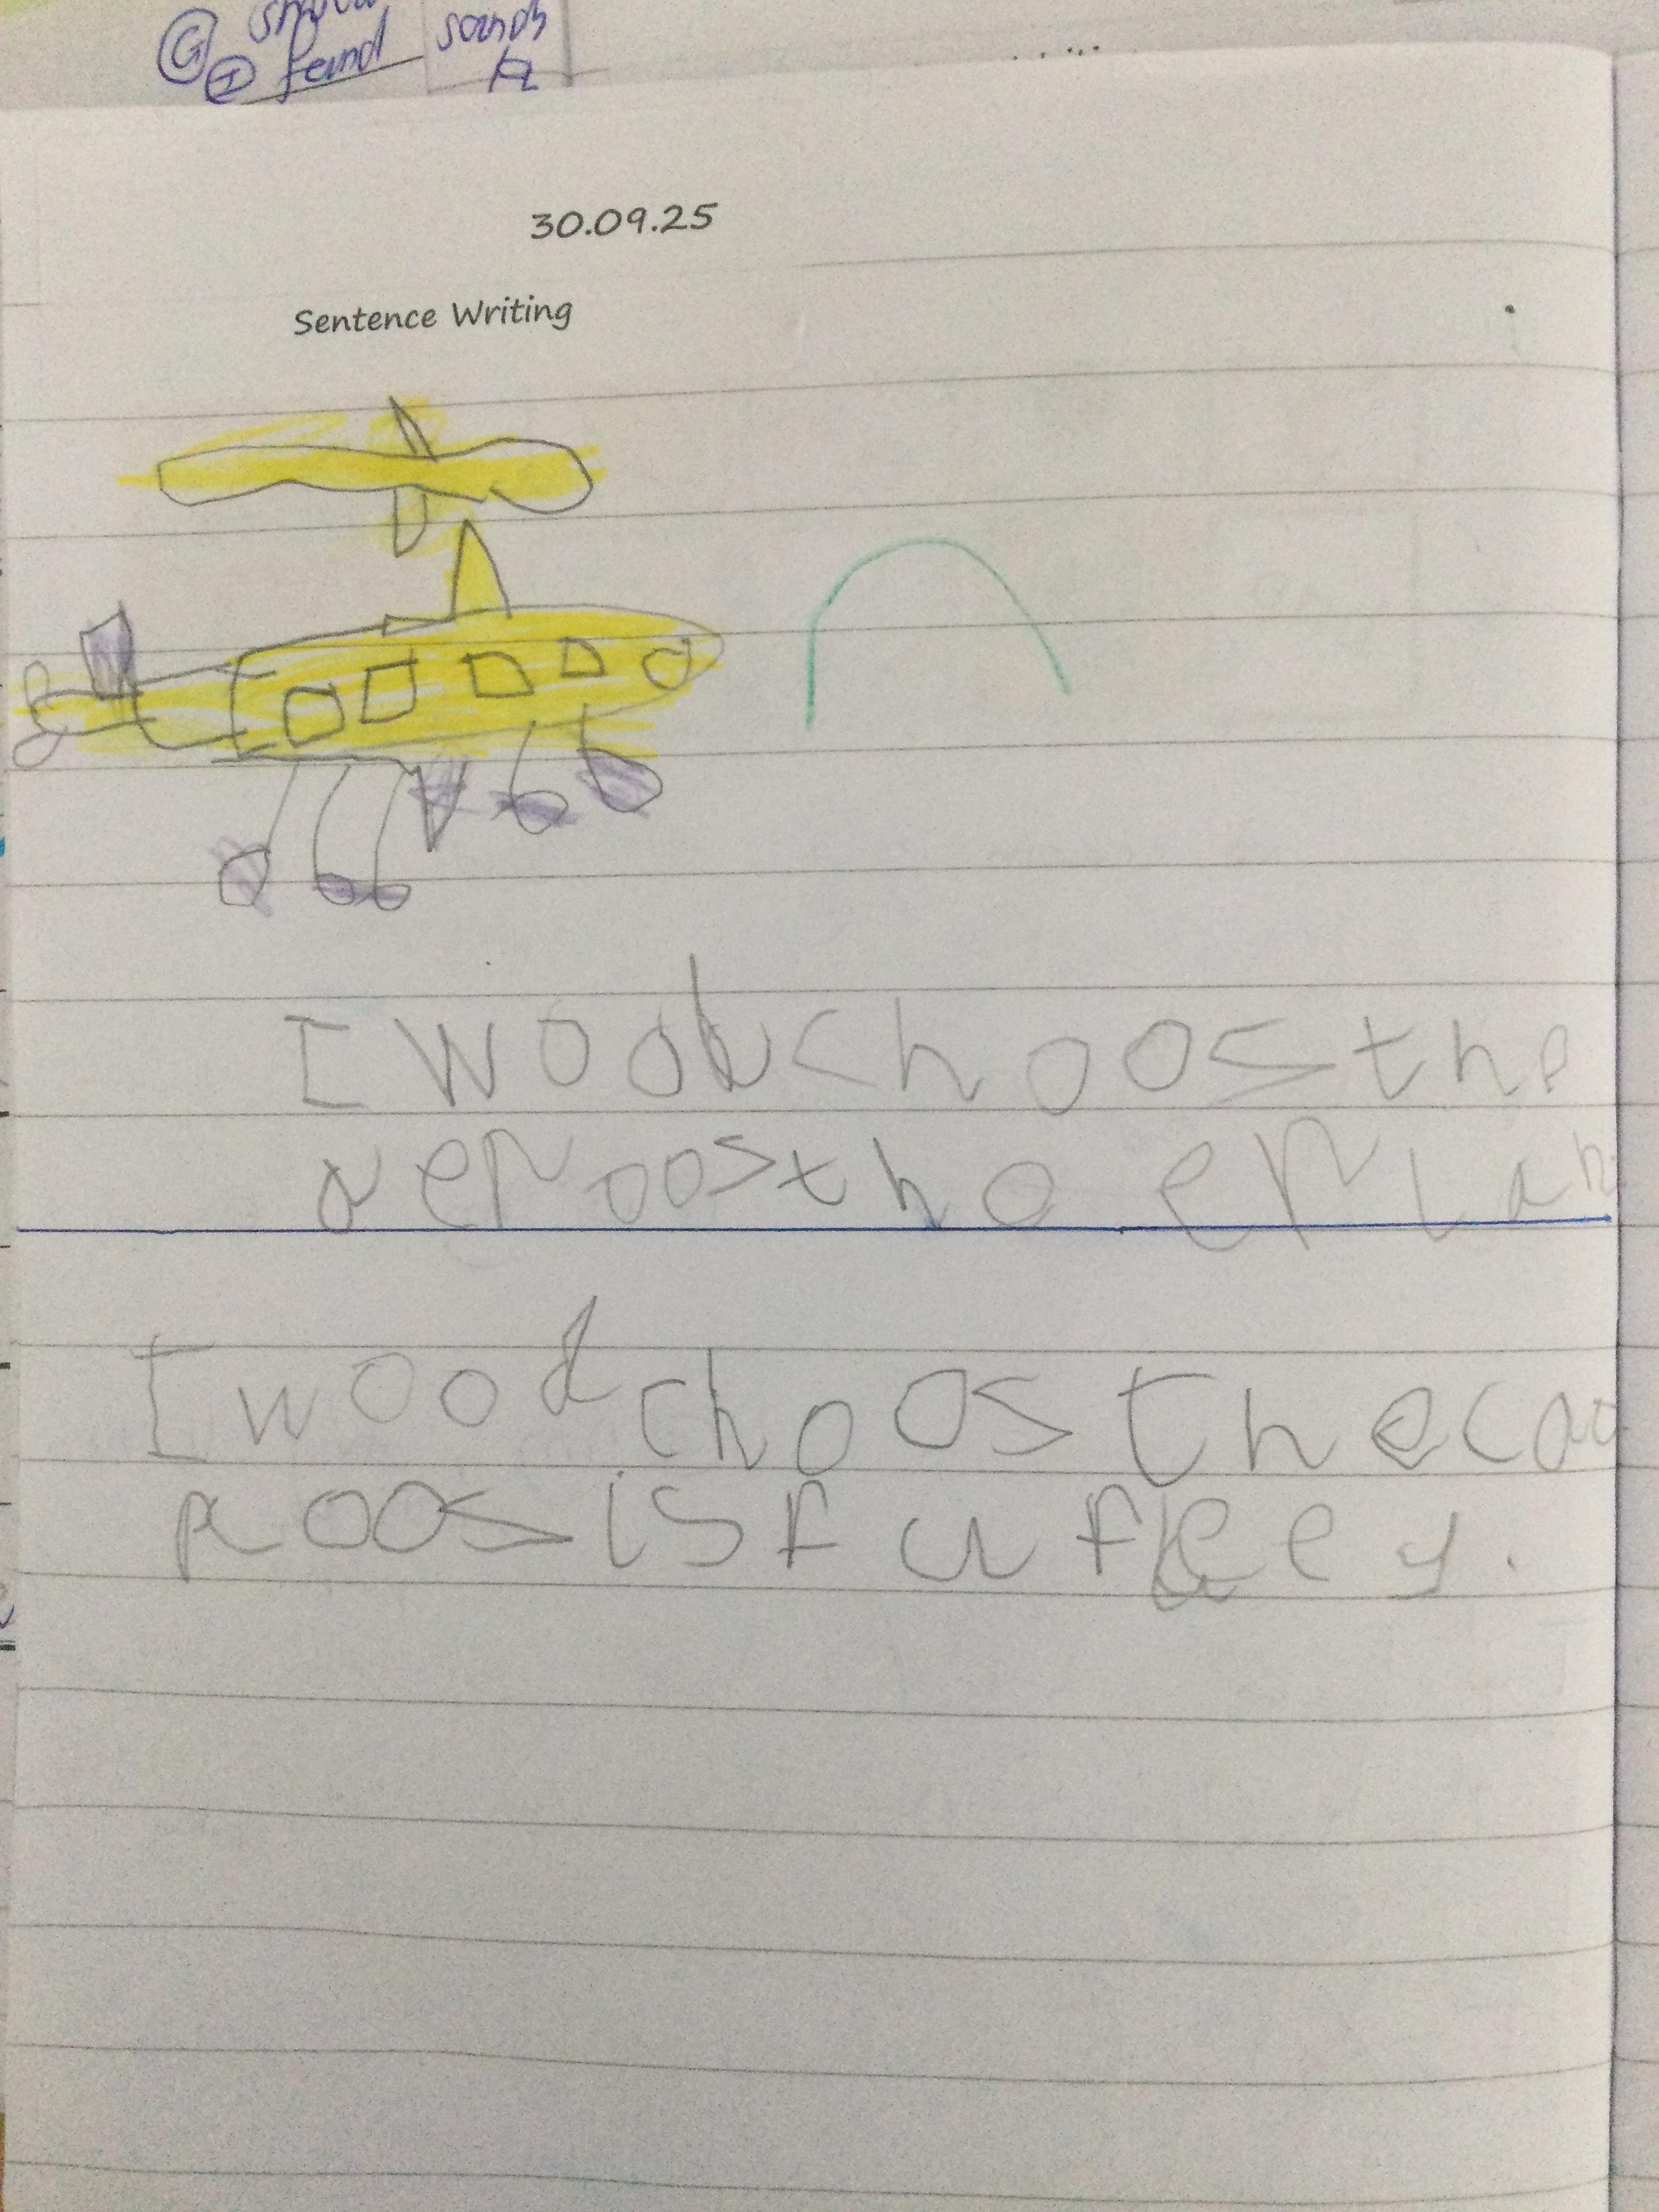 G
I find
sounds
30.09.25
Sentence Writing
I wood choos the
a er oos tho er lan
I wood choos the ca
r oos is fu fley.